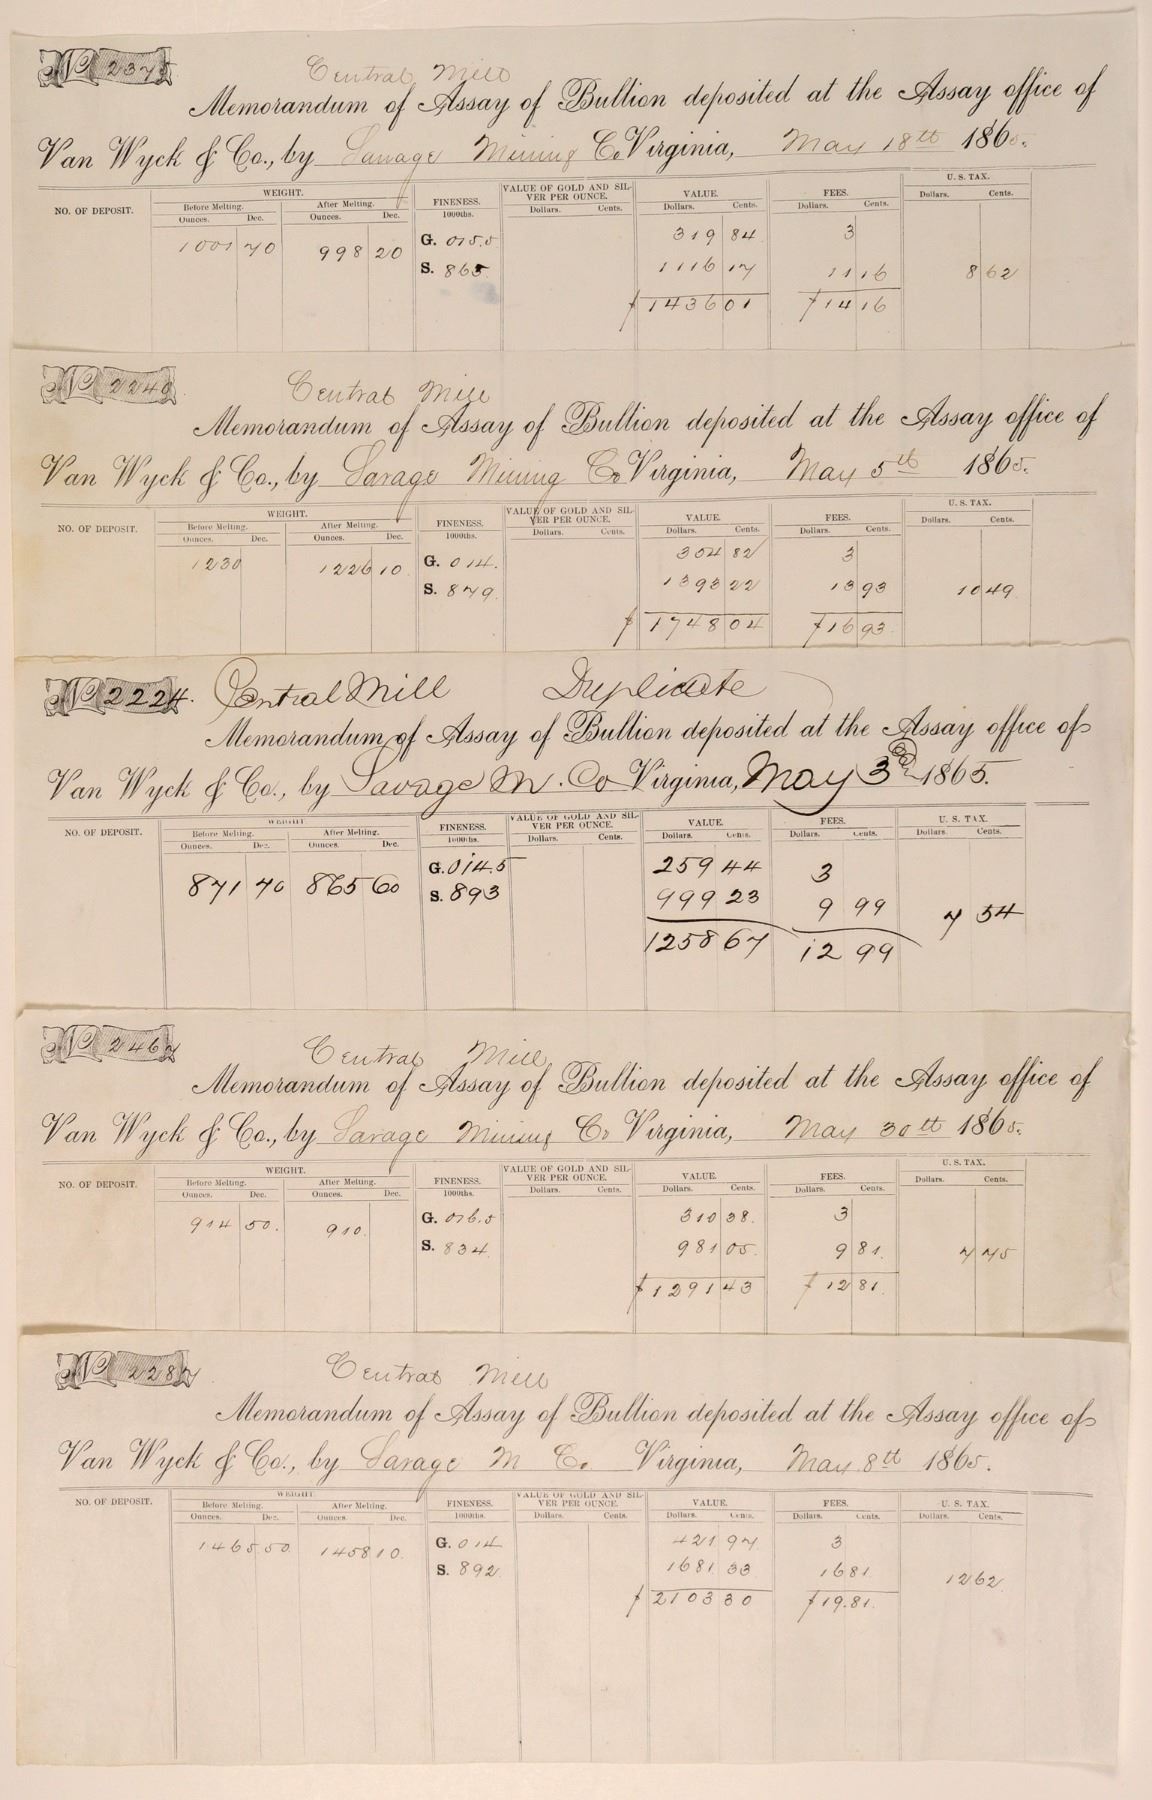 No 2375
Central Mill
Memorandum of Assay of Bullion deposited at the Assay office of
Van Wyck & Co., by Savage Mining Co Virginia, May 18th 1865.
NO. OF DEPOSIT. WEIGHT. FINENESS. VALUE OF GOLD AND SILVER PER OUNCE. VALUE. FEES. U. S. TAX.
Before Melting. After Melting. 1000ths. Dollars. Cents. Dollars. Cents. Dollars. Cents. Dollars. Cents.
Ounces. Dec. Ounces. Dec.
1001 70 998 20 G. 015.5 319 84 3
S. 865 1116 17 11 16 8 62
$1436 01 $14 16
No 2240
Central Mill
Memorandum of Assay of Bullion deposited at the Assay office of
Van Wyck & Co., by Savage Mining Co Virginia, May 5th 1865.
NO. OF DEPOSIT. WEIGHT. FINENESS. VALUE OF GOLD AND SILVER PER OUNCE. VALUE. FEES. U. S. TAX.
Before Melting. After Melting. 1000ths. Dollars. Cents. Dollars. Cents. Dollars. Cents. Dollars. Cents.
Ounces. Dec. Ounces. Dec.
1230 1226 10 G. 014. 354 82 3
S. 879. 1393 22 13 93 10 49
$1748 04 $16 93
No 2224. Central Mill Duplicate
Memorandum of Assay of Bullion deposited at the Assay office of
Van Wyck & Co., by Savage M. Co Virginia, May 3rd 1865.
NO. OF DEPOSIT. WEIGHT. FINENESS. VALUE OF GOLD AND SILVER PER OUNCE. VALUE. FEES. U. S. TAX.
Before Melting. After Melting. 1000ths. Dollars. Cents. Dollars. Cents. Dollars. Cents. Dollars. Cents.
Ounces. Dec. Ounces. Dec.
871 70 865 60 G. 014.5 259 44 3
S. 893 999 23 9 99 7 54
1258 67 12 99
No 2467
Central Mill
Memorandum of Assay of Bullion deposited at the Assay office of
Van Wyck & Co., by Savage Mining Co Virginia, May 30th 1865.
NO. OF DEPOSIT. WEIGHT. FINENESS. VALUE OF GOLD AND SILVER PER OUNCE. VALUE. FEES. U. S. TAX.
Before Melting. After Melting. 1000ths. Dollars. Cents. Dollars. Cents. Dollars. Cents. Dollars. Cents.
Ounces. Dec. Ounces. Dec.
914 50. 910. G. 016.5 310 38. 3
S. 834 981 05. 9 81. 7 75
$1291 43 $12 81.
No 2287
Central Mill
Memorandum of Assay of Bullion deposited at the Assay office of
Van Wyck & Co., by Savage M Co. Virginia, May 8th 1865.
NO. OF DEPOSIT. WEIGHT. FINENESS. VALUE OF GOLD AND SILVER PER OUNCE. VALUE. FEES. U. S. TAX.
Before Melting. After Melting. 1000ths. Dollars. Cents. Dollars. Cents. Dollars. Cents. Dollars. Cents.
Ounces. Dec. Ounces. Dec.
1465 50 1458 10. G. 014 421 97. 3
S. 892. 1681 33 16 81 12 62
$2103 30 $19.81.